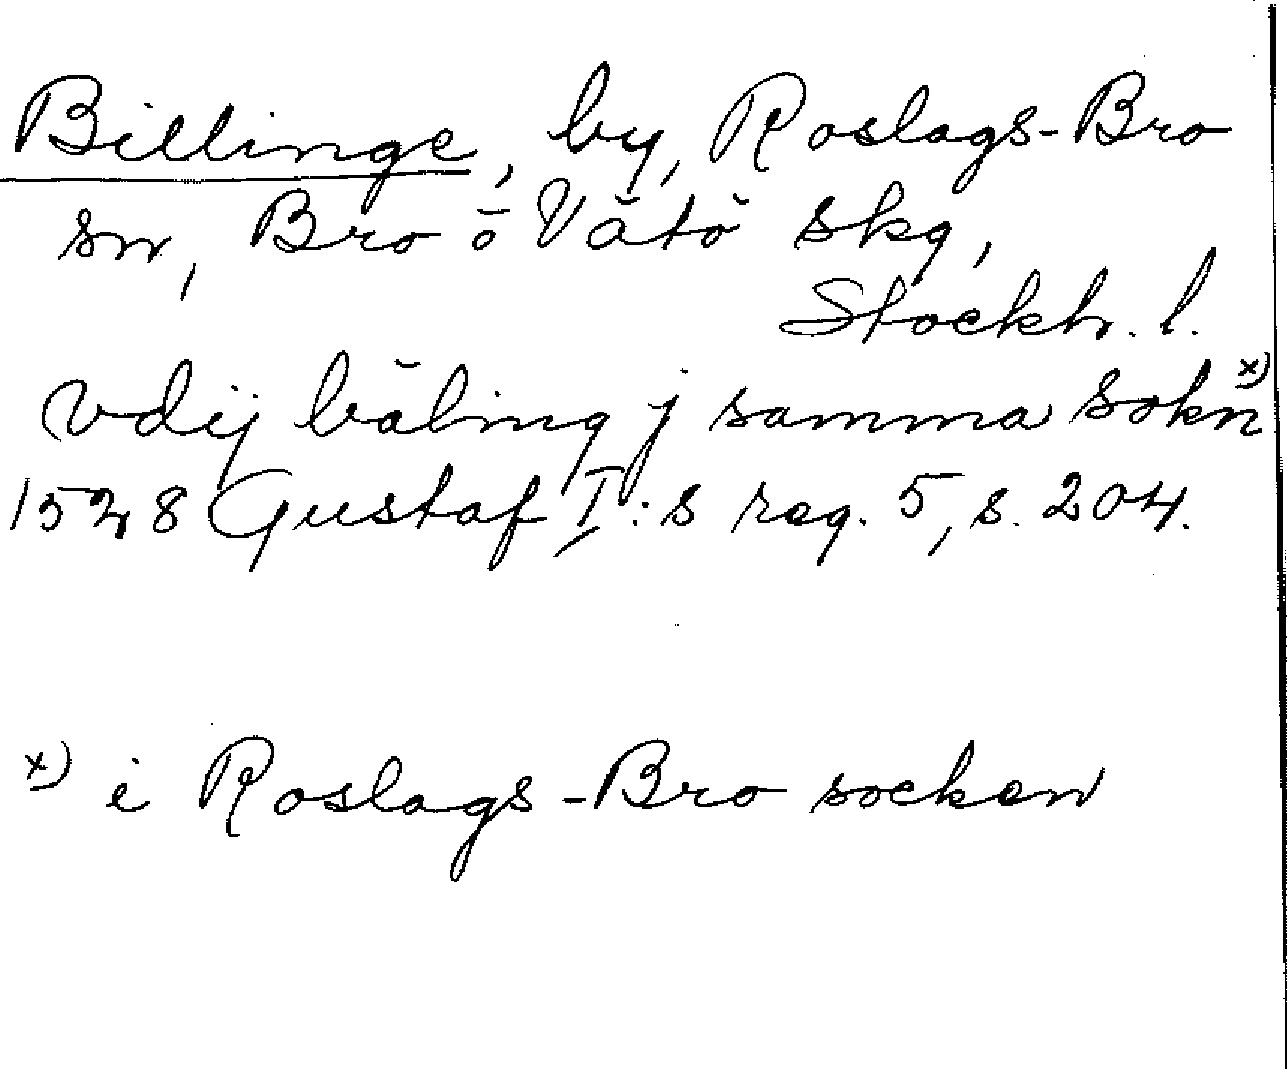 Billinge, by, Roslags-Bro
sn, Bro o Vätö skg,
Stockh. l.
vdij bäling j samma sokn x)
1528 Gustaf I:s reg. 5, s. 204.
x) i Roslags-Bro socken